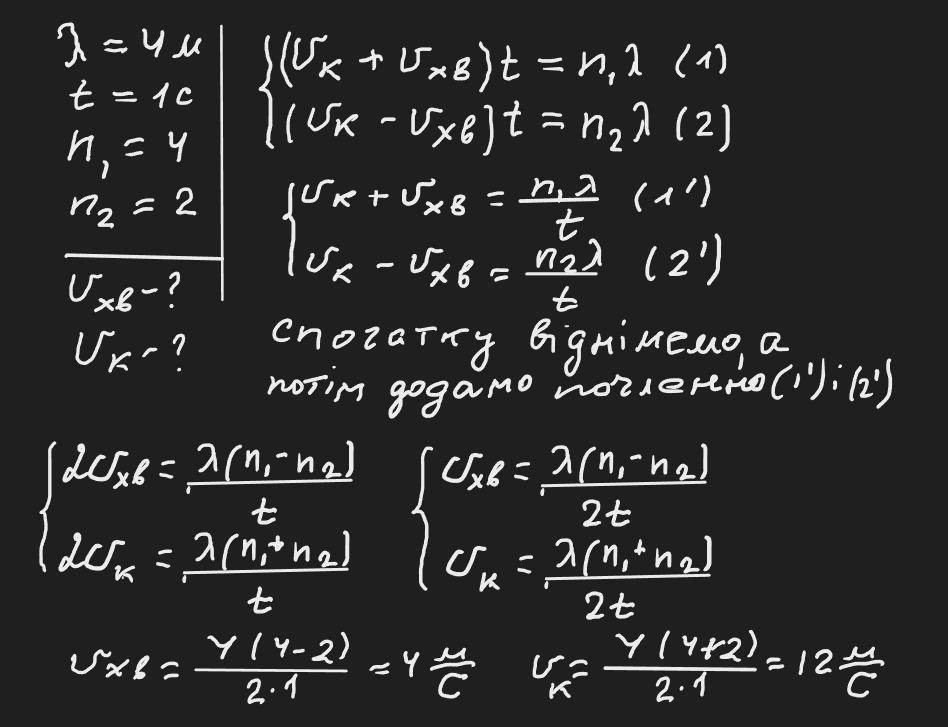 λ = 4м
t = 1c
n₁ = 4
n₂ = 2
υхв - ?
υк - ?
{(υк + υхв)t = n₁λ (1)
{(υк - υхв)t = n₂λ (2)
{υк + υхв = n₁λ/t (1')
{υк - υхв = n₂λ/t (2')
спогатку віднімемо, а
потім додамо почленно (1') і (2')
{2υхв = λ(n₁-n₂)/t
{2υк = λ(n₁+n₂)/t
{υхв = λ(n₁-n₂)/2t
{υк = λ(n₁+n₂)/2t
υхв = 4(4-2)/2·1 = 4 м/с
υк = 4(4+2)/2·1 = 12 м/с